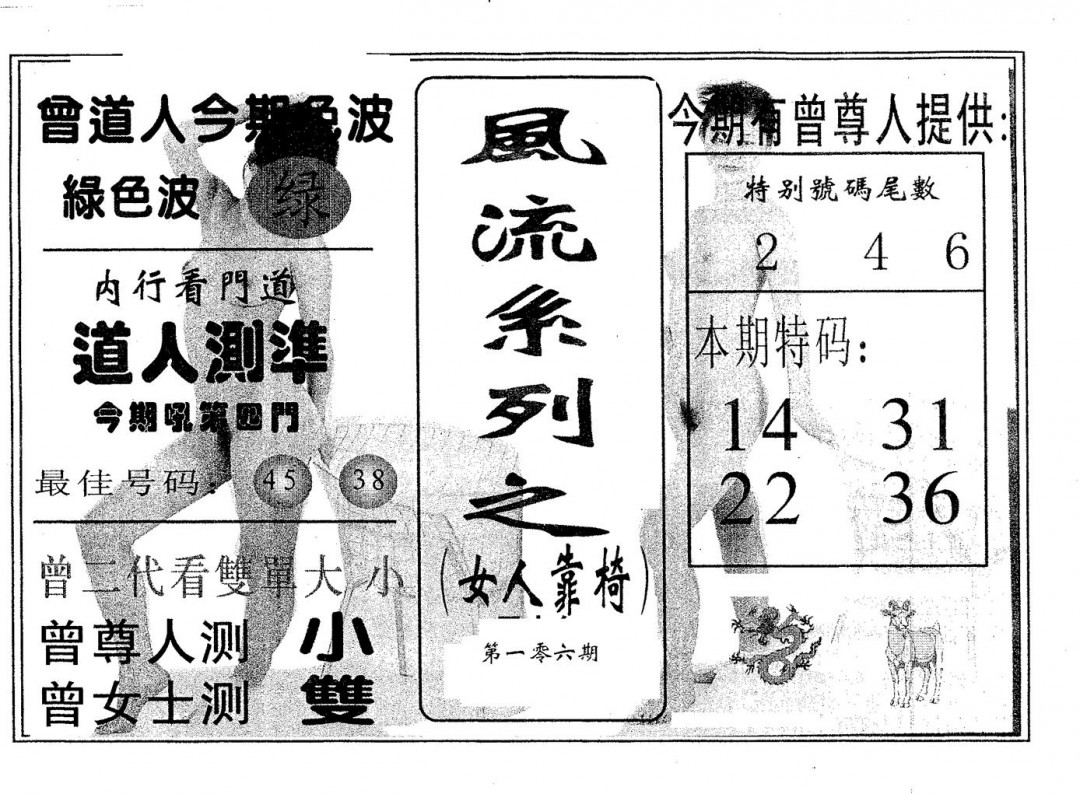 曾道人今期色波
綠色波 绿
内行看門道
道人測準
今期吼第四門
最佳号码: 45 38
曾二代看雙單大小
曾尊人测 小
曾女士测 雙
風流系列之
(女人靠椅)
第一零六期
今期有曾尊人提供:
特别號碼尾數
2 4 6
本期特码:
14 31
22 36